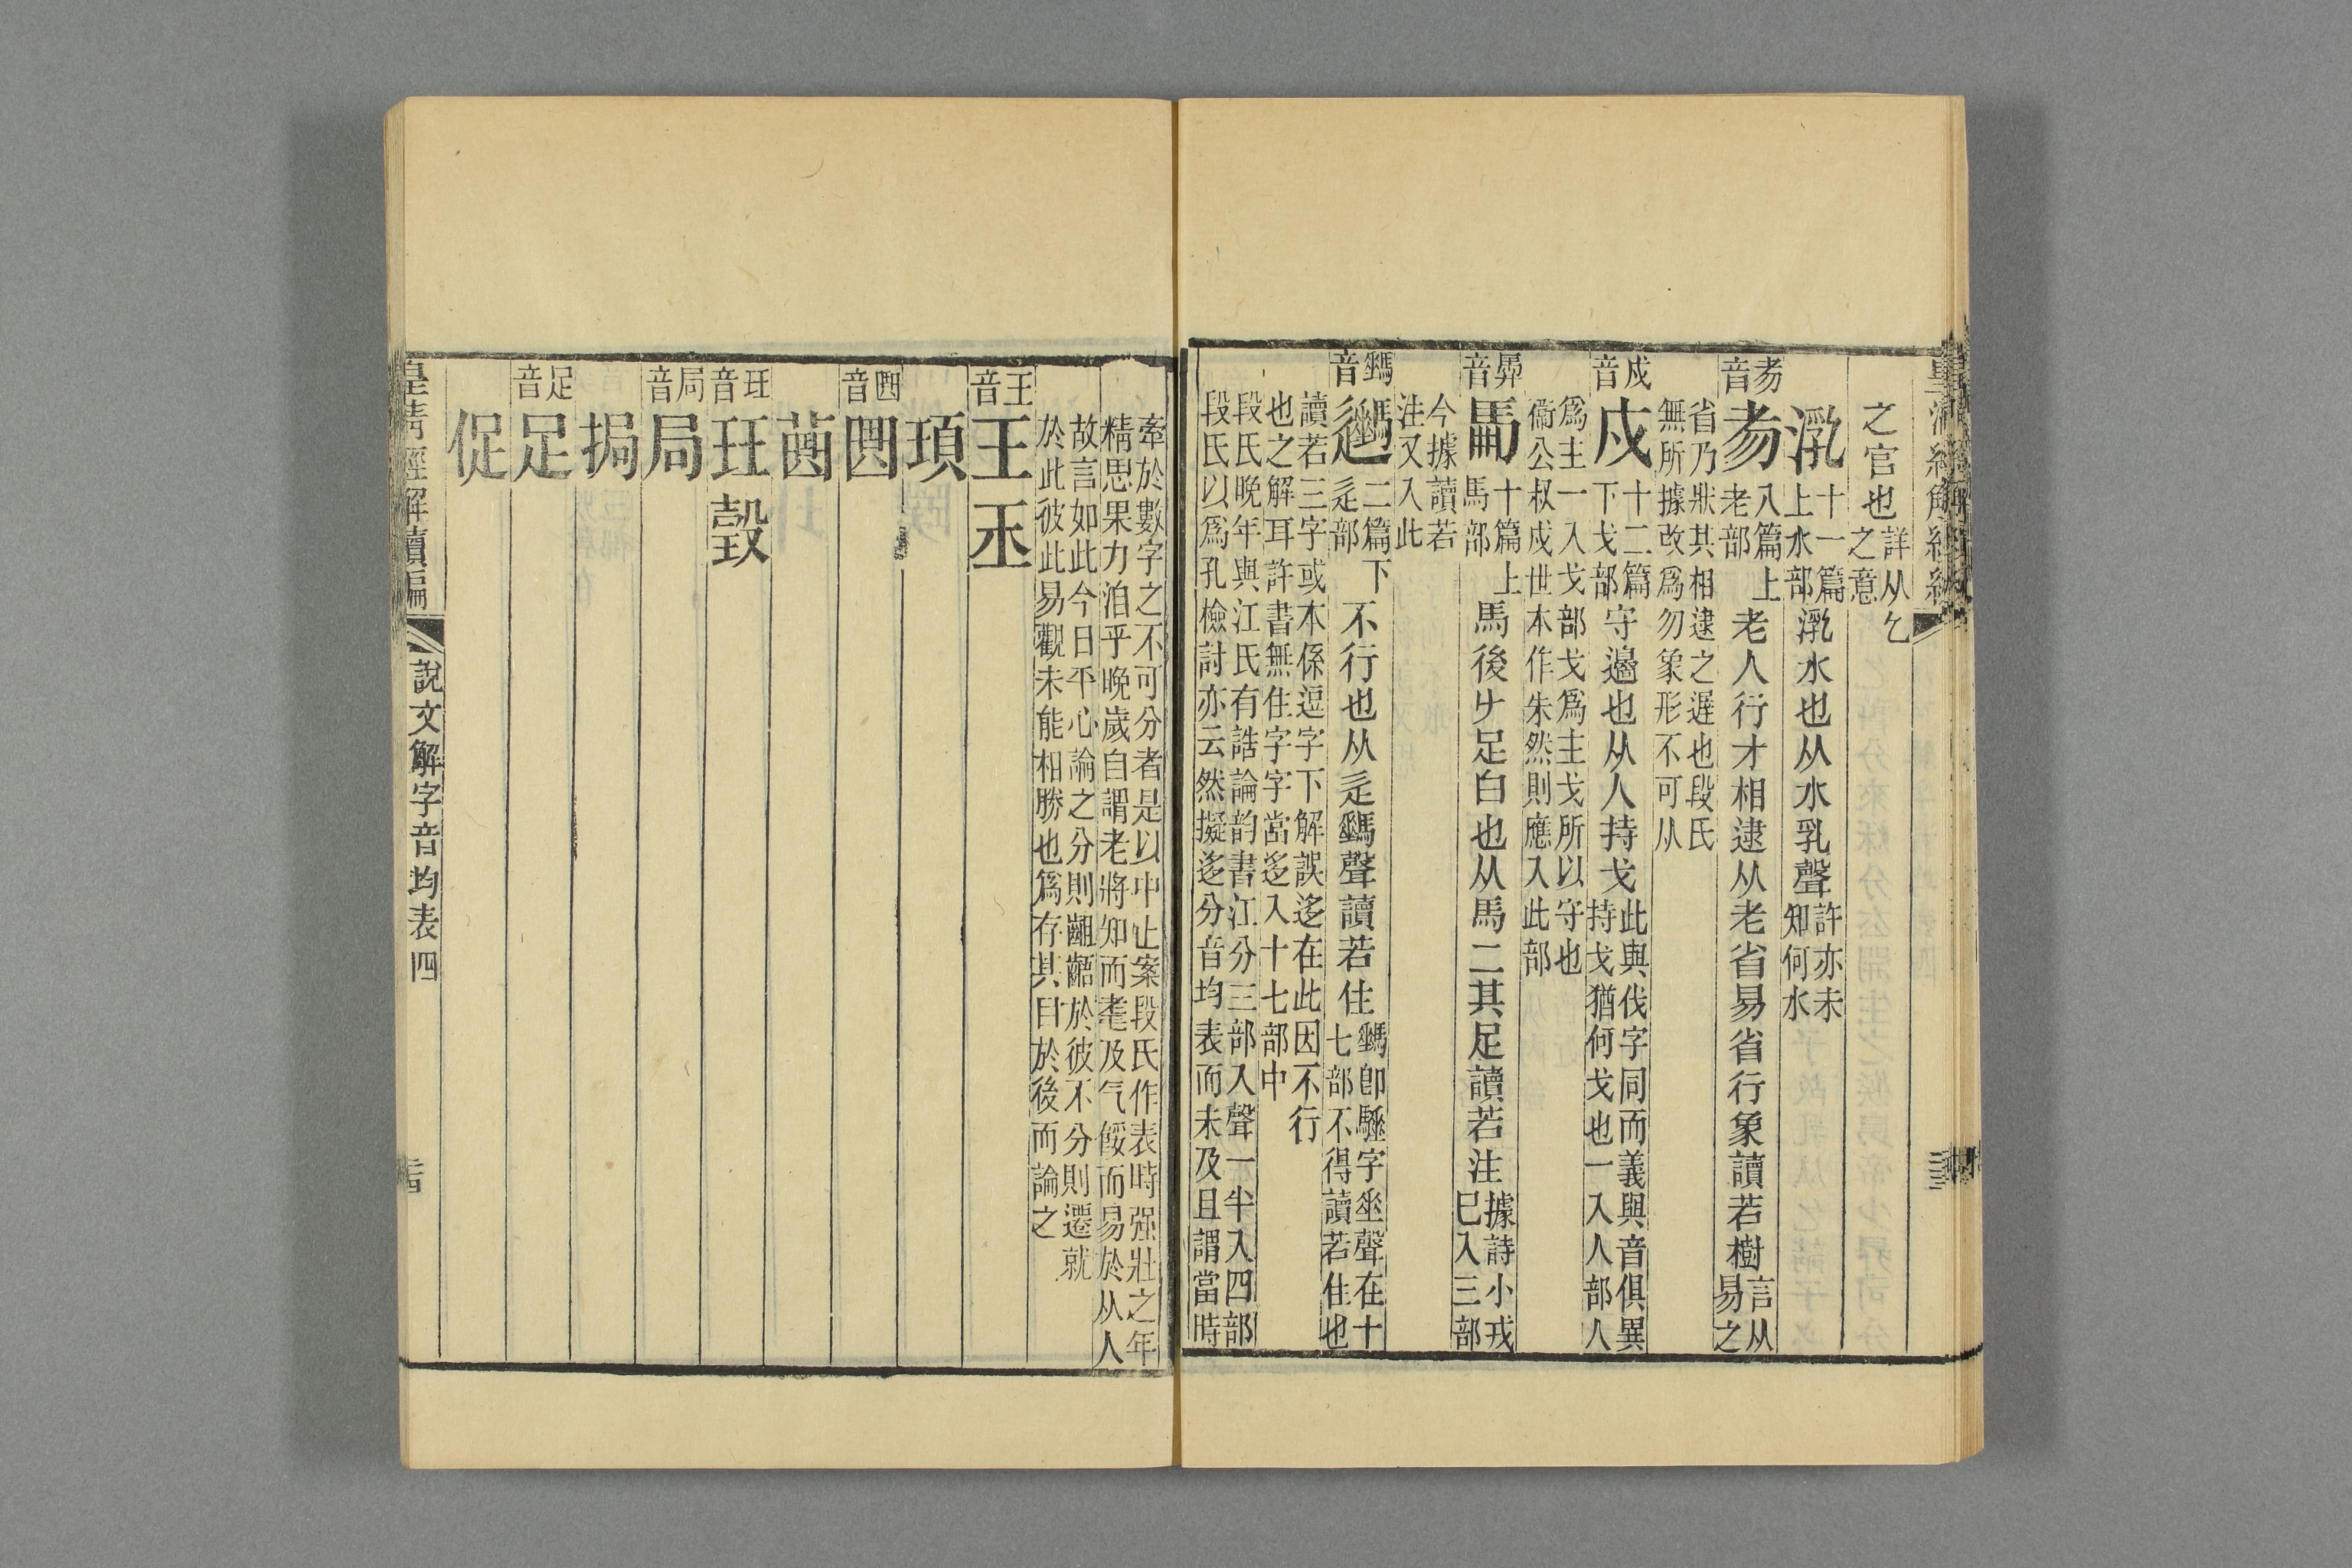 之官也詳从乞
之意
㶍十一篇
上水部㶍水也从水乳聲許亦未
知何水
耂昜音
八篇上
老部老人行才相逮从老省易省行象讀若樹言从
易之
省乃狀其相逮之遲也段氏
無所據改爲勿象形不可从
戍音
戍十二篇
下戈部守邊也从人持戈此與伐字同而義與音俱異
持戈猶何戈也一入人部人
爲主一入戈部戈爲主戈所以守也
衞公叔戍世本作朱然則應入此部
馵音
十篇上
馬部馬後𠂇足白也从馬二其足讀若注據詩小戎
巳入三部
今據讀若
注又入此
音
二篇下
辵部不行也从辵聲讀若住
卽驅字坐聲在十
七部不得讀若住也
讀若三字或本係逗字下解誤迻在此因不行
也之解耳許書無住字字當迻入十七部中
段氏晚年與江氏有誥論韵書江分三部入聲一半入四部
段氏以爲孔檢討亦云然擬迻分音均表而未及且謂當時
牽於數字之不可分者是以中止案段氏作表時强壯之年
精思果力洎乎晚歲自謂老將知而耄及气餒而易於从人
故言如此今日平心論之分則齟齬於彼不分則遷就
於此彼此易觀未能相勝也爲存其目於後而論之
王音
王 玊
頊
音
局音
局
挶
足音
足
促
皇清經解續編
說文解字音均表四